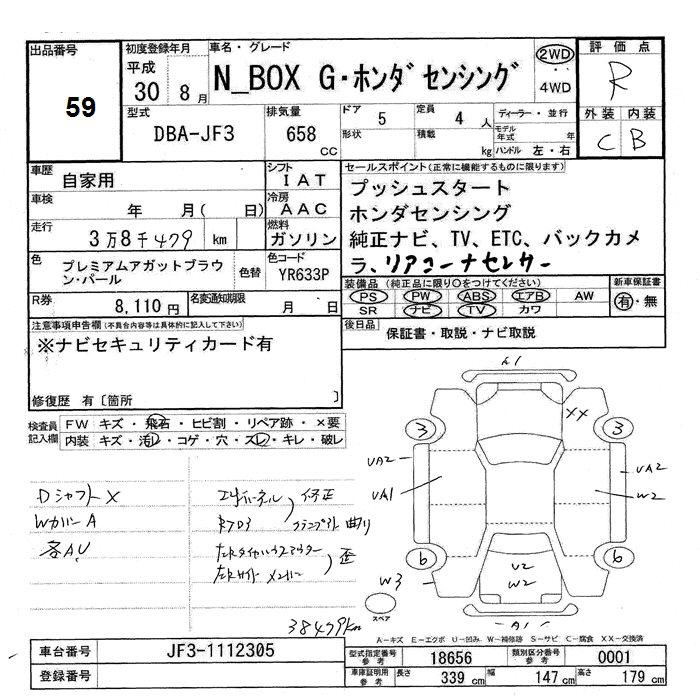 出品番号
59
初度登録年月
平成
30 8 月
車名・グレード
N_BOX G・ホンダセンシング
2WD
4WD
評価点
R
外装 内装
C B
型式
DBA-JF3
排気量
658
cc
ドア
5
形状
定員
4 人
積載
kg
ディーラー・並行
モデル年式 年
ハンドル 左・右
車歴
自家用
車検
年 月( 日)
走行
3万8千479 km
シフト
IAT
冷房
AAC
燃料
ガソリン
セールスポイント(正常に機能するものに限ります)
プッシュスタート
ホンダセンシング
純正ナビ、TV、ETC、バックカメ
ラ、リアコーナセンサー
色
プレミアムアガットブラウ
ン・パール
色替
色コード
YR633P
R券
8,110円
名変通知期限
月 日
装備品(純正品に限り○をつけてください)
PS PW ABS エアB AW
SR ナビ TV カワ
新車保証書
有・無
後日品
保証書・取説・ナビ取説
注意事項申告欄(不具合内容等は具体的に記入して下さい)
※ナビセキュリティカード有
修復歴 有〔箇所 〕
検査員
記入欄
FW キズ・飛石・ヒビ割・リペア跡・×要
内装 キズ・汚レ・コゲ・穴・スレ・キレ・破レ
DシャフトX
WカバーA
各AU
修正
曲り
歪
38479km
A1
XX
3
3
UA2
UA1
UA2
W2
6
6
U2
W2
W3
A1
スペア
A－キズ E－エクボ U－凹み W－補修跡 S－サビ C－腐食 XX－交換済
車台番号
JF3-1112305
登録番号
型式指定番号
参考
18656
類別区分番号
参考
0001
車庫証明用
参考
長さ 339 cm 幅 147 cm 高さ 179 cm